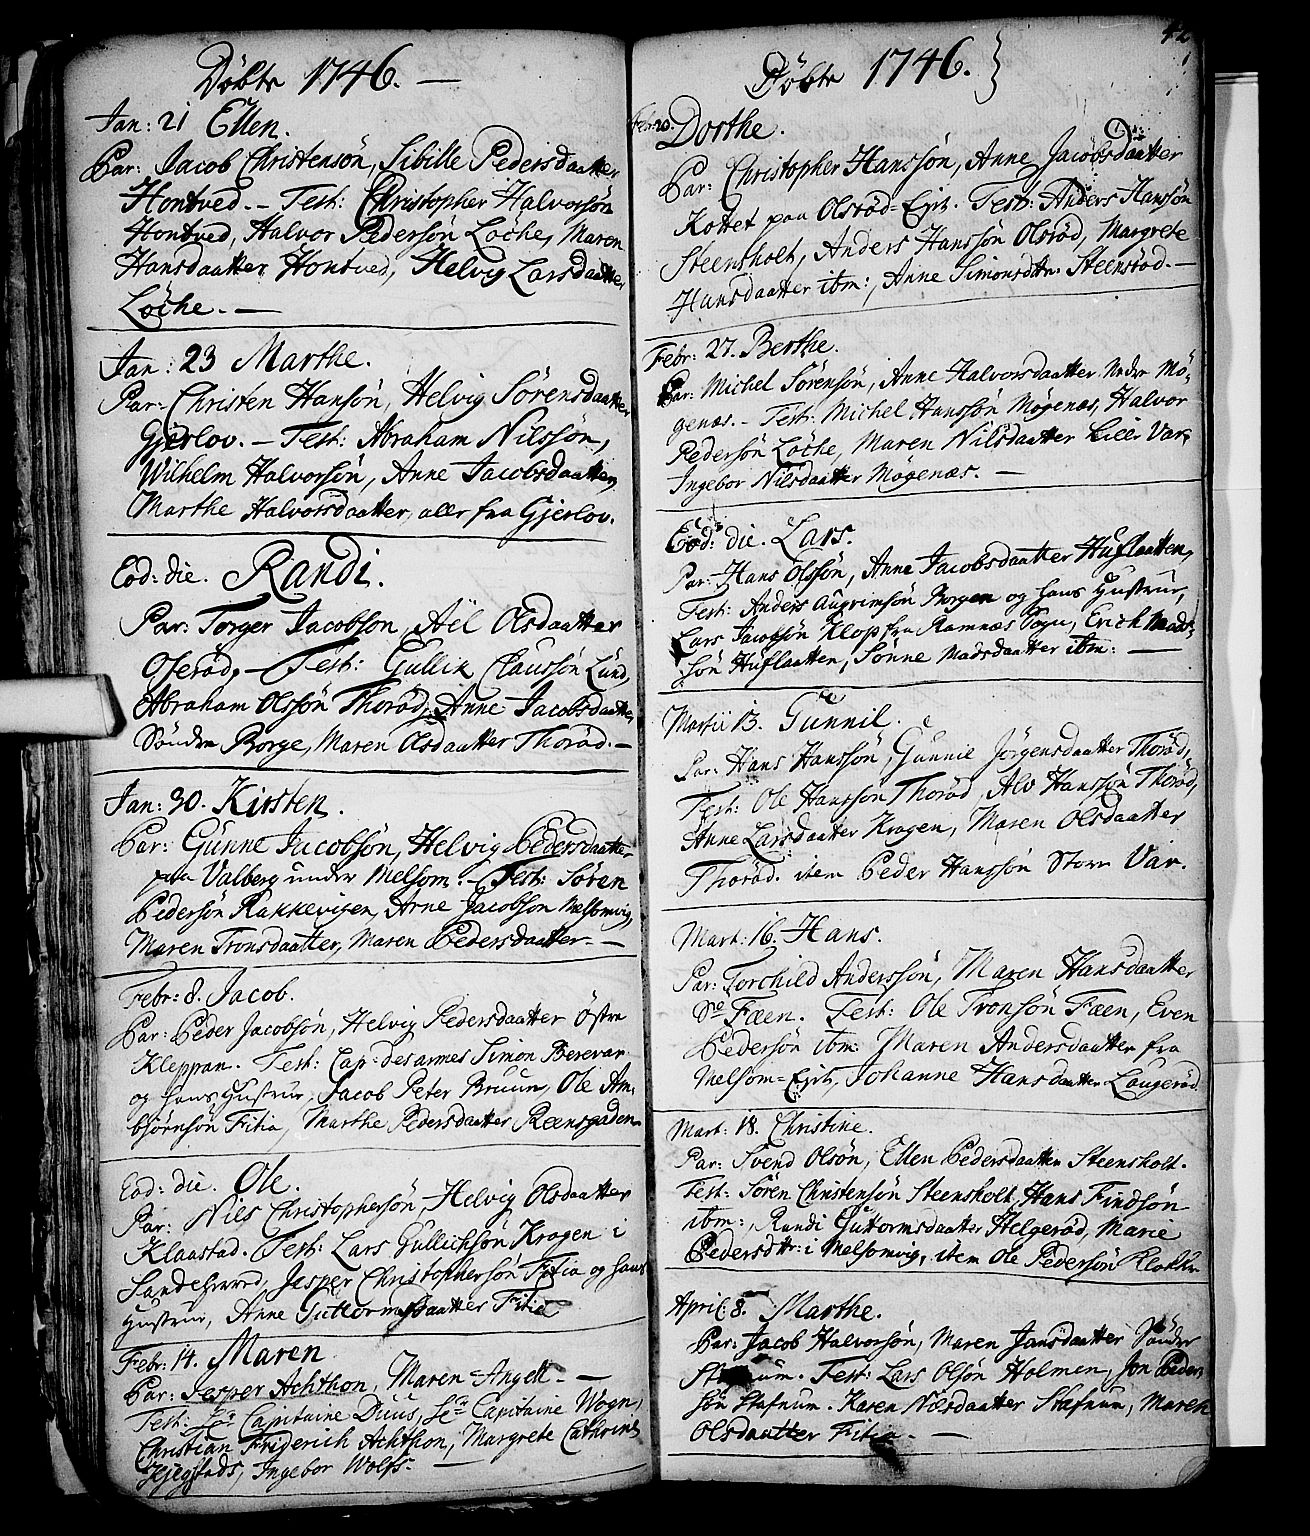 Döbte 1746. —
Jan: 21 Ellen.
Par: Jacob Christensön, Sibille Pedersdaatter
Hontved. – Test: Christopher Halvorsön
Hontved, Halvor Pedersön Löche, Maren
Hansdaatter Hontved, Helvig Larsdaatter
Löche. —
Jan: 23 Marthe.
Par: Christen Hansön, Helvig Sörensdaatter
Gjerlov. – Test: Abraham Nilssön,
Wilhelm Halvorsön, Anne Jacobsdaatter,
Marthe Halvorsdaatter, alle fra Gjerlov.
Eod: die. Randi.
Par: Torger Jacobsön, Aël Olsdaatter
Oseröd, – Test: Gullik Claussön Lund,
Abraham Olssön Thoröd, Anne Jacobsdaatter
Söndre Borge, Maren Olsdaatter Thoröd. –
Jan: 30. Kirsten.
Par: Gunne Jacobsön, Helvig Pedersdaatter
paa Valberg under Melsom. – Test: Sören
Pedersön Rakkevigen, Arne Jacobsön Melsomvig,
Maren Tronsdaatter, Maren Pedersdaatter. —
Febr: 8. Jacob.
Par: Peder Jacobsön, Helvig Pedersdaatter Östre
Kleppan. Test: Cap: desarmes Simon
og hans Hustrue, Jacob Peter Bruun, Ole Am-
björnsön Fitia, Marthe Pedersdaatter
Eod: die. Ole.
Par: Nils Christophersön, Helvig Olsdaatter
Klaastad. Test: Lars Gullichsön Kragen i
Sandeherred, Jesper Christophersön Fitia og hans
Hustrue, Anne Guttormsdaatter Fitia
Febr: 14. Maren
Par: Jesper Achthon, Maren Angell. —
Test: Sr Capitaine Duus, Sr Capitaine Wogn,
Christian Friderich Achthon, Margrete Cathrine
Hjegstads, Ingebor Wolfs. —
42
Döbte 1746.
Febr: 20. Dorthe.
Par: Christopher Hanssön, Anne Jacobsdaatter
Kottet paa Olsröd-Ejet. Test: Anders Hanssön
Steensholt, Anders Hanssön Olsröd, Margrete
Hansdaatter ibm:, Anne Simonsdtr: Steensröd. —
Febr: 27. Berthe.
Par: Michel Sörensön, Anne Halvorsdaatter Nedre Mö-
genæs. – Test: Michel Hanssön Mögenæs, Halvor
Pedersön Löche, Maren Nilsdaatter Lille Var,
Ingebor Nilsdaatter Mögenæs. —
Eod: die. Lars.
Par: Hans Olssön, Anne Jacobsdaatter Huflaatten,
Test: Anders Augrimsön Borgen og hans Hustrue,
Lars Jacobsön Klop fra Ramnæs Sogn, Erich Mads-
sön Huflaatten, Sönne Madsdaatter ibm: —
Martii 13. Gunnil.
Par: Hans Hanssön, Gunnil Jörgensdaatter Thoröd,
Test: Ole Hanssön Thoröd, Alv Hanssön Thoröd,
Anne Larsdaatter Kragen, Maren Olsdaatter
Thoröd. item Peder Hanssön Store Vär.
Mart: 16. Hans.
Par: Torchild Anderssön, Maren Hansdaatter
Fæen. Test: Ole Tronsön Fæen, Even
Pedersön ibm: Maren Andersdaatter fra
Melsom-Ejet, Johanne Hansdaatter Laugeröd
Mart: 18. Christine.
Par: Svend Olsön, Ellen Pedersdaatter Steensholt.
Test: Sören Christensön Steensholt, Hans Findsön
ibm:, Randi Guttormsdaatter Helgeröd, Marie
Pedersdtr: i Melsomvig, item Ole Pedersön Klokker
April: 8. Marthe.
Par: Jacob Halvorsön, Maren Jansdaatter Söndre
Stafnum. Test: Lars Olsön Holmen, Jon Peder-
sön Stafnum. Karen Nilsdaatter Stafnum, Maren
Olsdaatter Fitia. —